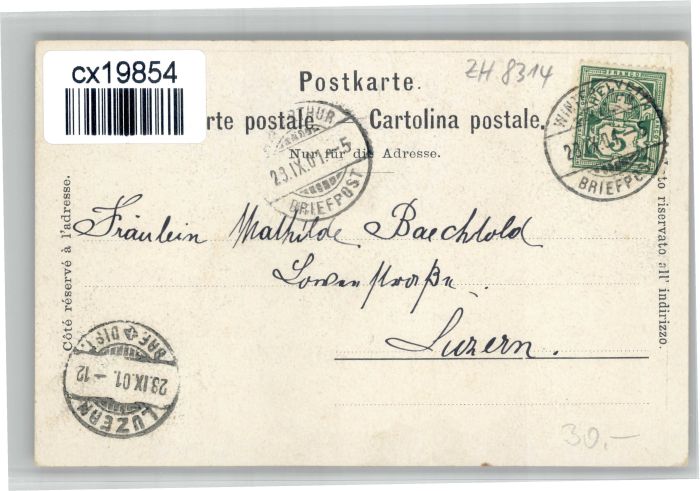 cx19854
ZH 8314
Postkarte.
rte postale Cartolina postale.
Nur für die Adresse.
FRANCO
HELVETIA
5
WINTERTHUR
BRIEFPOST
THUR
23.IX.01.-5
BRIEFPOST
Côté réservé à l'adresse.
to riservato all' indirizzo.
Fräulein Mathilde Baechtold
Lowenstraße.
Luzern.
BRF. DIST.
23.IX.01.-12
LUZERN
30.-